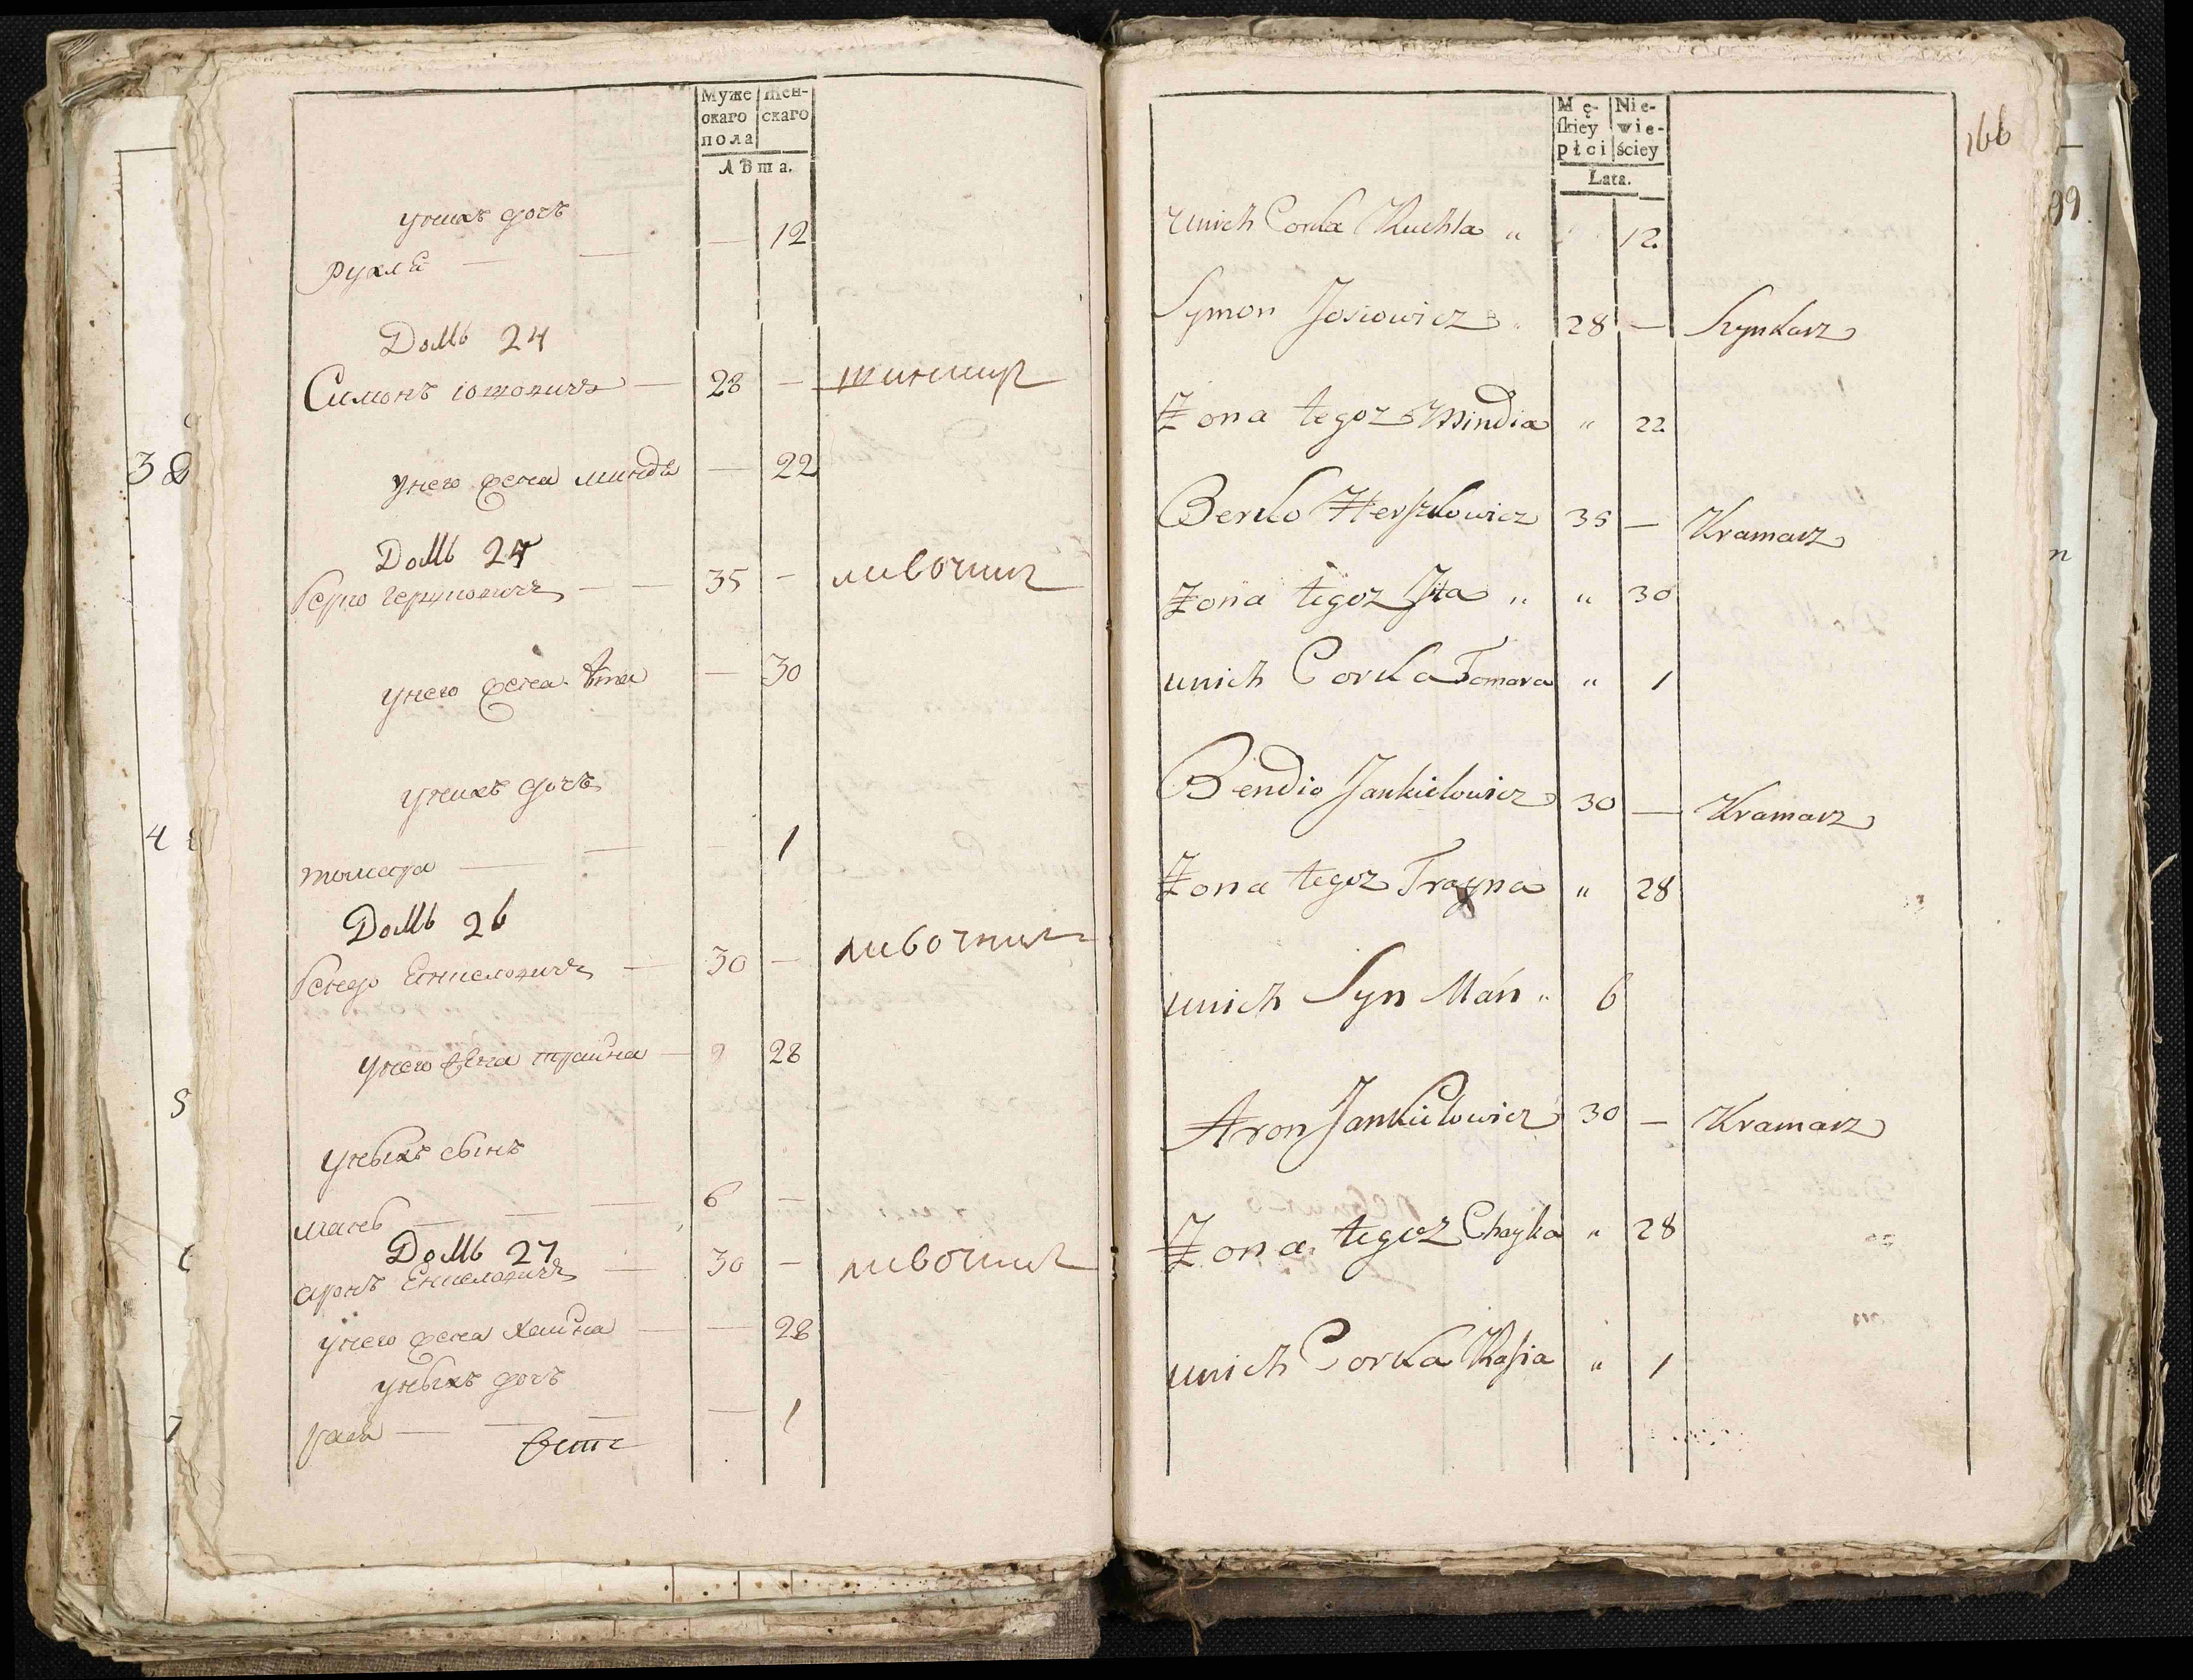 Муже
скаго
пола
жен-
скаго
Лѣта.
унихъ дочь
Рухля — — — 12
Домъ 24
Симонъ — 28 — шинкир
у него жена минда — 22
Домъ 24
35 — лавочник
у него жена — 30
унихъ дочь
томара — — — 1
Домъ 26
— 30 — лавочник
у него жена трайна — 28
уныхъ сынъ
мань — — — 6 —
Домъ 27
— 30 — лавочник
у него жена хайка — — 28
уныхъ дочь
— — — — 1
Mę-
skiey
płci
Nie-
wie-
ściey
Lata.
166
unich Corka Ruchla „ 12
Symon Josiowicz „ 28 — Szynkarz
Zona tegoz Mindia „ 22
Berko Herszkowicz 35 — Kramarz
Zona tegoz Ita „ „ 30
unich Corka Tomara „ 1
Bendio Jankielowicz 30 — Kramarz
Zona tegoz Trayna „ 28
unich Syn Mań „ 6
Aron Jankielowicz 30 — Kramarz
Zona tegoz Chayka „ 28
unich Corka Rasia „ 1
38
4
5
7
99
n